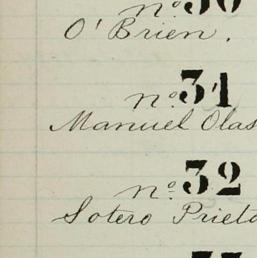 nº 30
O'Brien.
nº 31
Manuel Olas
nº 32
Sotero Prieto
33